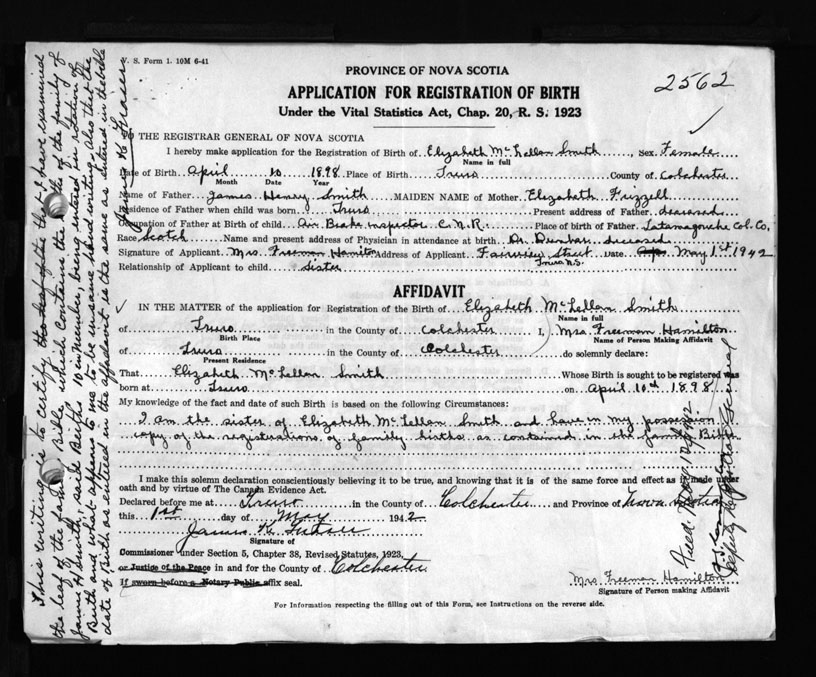 V. S. Form 1. 10M 6-41
PROVINCE OF NOVA SCOTIA
APPLICATION FOR REGISTRATION OF BIRTH
Under the Vital Statistics Act, Chap. 20, R. S. 1923
2562
TO THE REGISTRAR GENERAL OF NOVA SCOTIA
I hereby make application for the Registration of Birth of Elizabeth McLellan Smith, Sex Female
Name in full
Date of Birth April 10 1898 Place of Birth Truro County of Colchester
Month Date Year
Name of Father James Henry Smith MAIDEN NAME of Mother Elizabeth Frizzell
Residence of Father when child was born Truro Present address of Father deceased
Occupation of Father at Birth of child Air Brake Inspector C.N.R. Place of birth of Father Tatamagouche Col. Co.
Race Scotch Name and present address of Physician in attendance at birth Dr. Dunbar deceased
Signature of Applicant Mrs. Freeman Hamilton Address of Applicant Fairview Street Date May 1st 1942
Truro N.S.
Relationship of Applicant to child Sister
AFFIDAVIT
IN THE MATTER of the application for Registration of the Birth of Elizabeth McLellan Smith
Name in full
of Truro in the County of Colchester I, Mrs Freeman Hamilton
Birth Place Name of Person Making Affidavit
of Truro in the County of Colchester do solemnly declare:
Present Residence
That Elizabeth McLellan Smith Whose Birth is sought to be registered was
born at Truro on April 10th 1898
My knowledge of the fact and date of such Birth is based on the following Circumstances:
I am the sister of Elizabeth McLellan Smith and have in my possession
copy of the registrations of family births as contained in the family Bible
I make this solemn declaration conscientiously believing it to be true, and knowing that it is of the same force and effect as if made under
oath and by virtue of The Canada Evidence Act.
Declared before me at Truro in the County of Colchester and Province of Nova Scotia
this 1st day of May 1942
James K.
Signature of
Commissioner under Section 5, Chapter 38, Revised Statutes, 1923,
or Justice of the Peace in and for the County of Colchester
If sworn before a Notary Public affix seal.
Mrs. Freeman Hamilton
Signature of Person making Affidavit
For Information respecting the filling out of this Form, see Instructions on the reverse side.
This writing is to certify that I have examined
the leaf of the family Bible, which contains the births of the family of
James H. Smith, said Births 10 in number, being entered in rotation of
Birth and what appears to me to be in same hand writing, also that the
date of Birth as entered in the affidavit is the same as entered in the bible
James K.
Filed May 12 1942
Deputy Registrar General